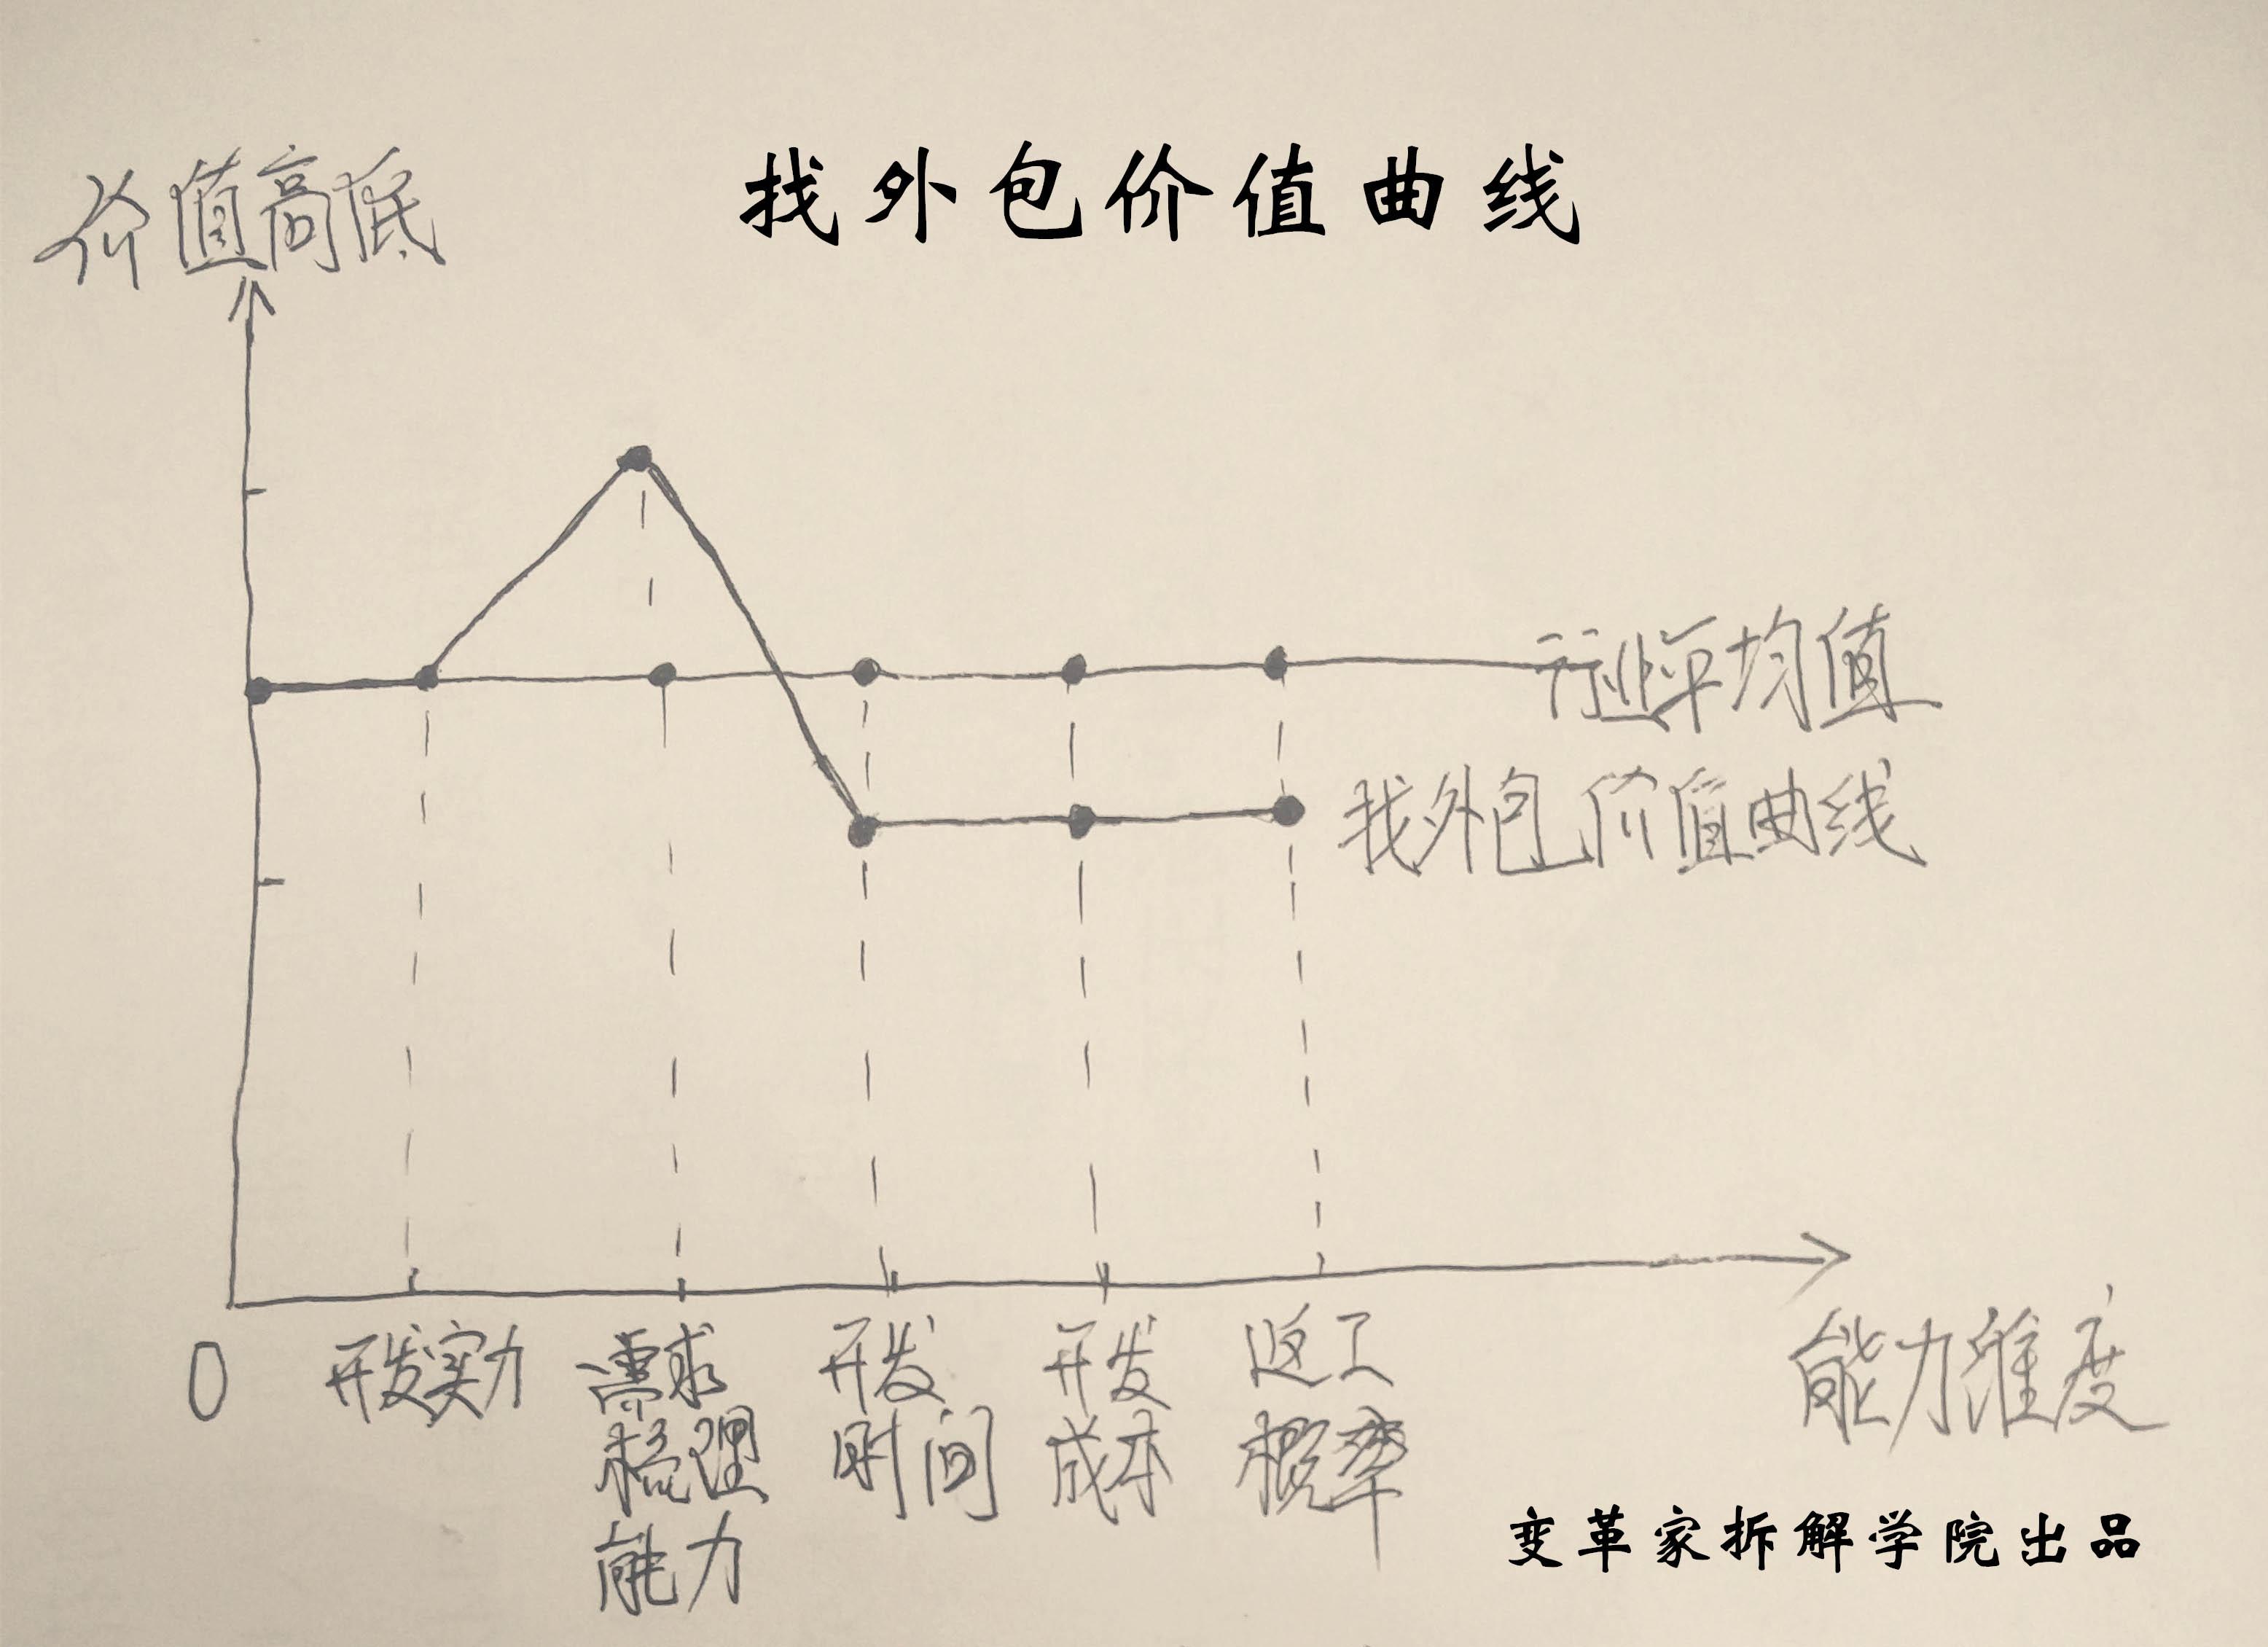 找外包价值曲线
价值高低
行业平均值
找外包价值曲线
0
开发实力
需求
梳理
能力
开发
时间
开发
成本
返工
概率
能力维度
变革家拆解学院出品